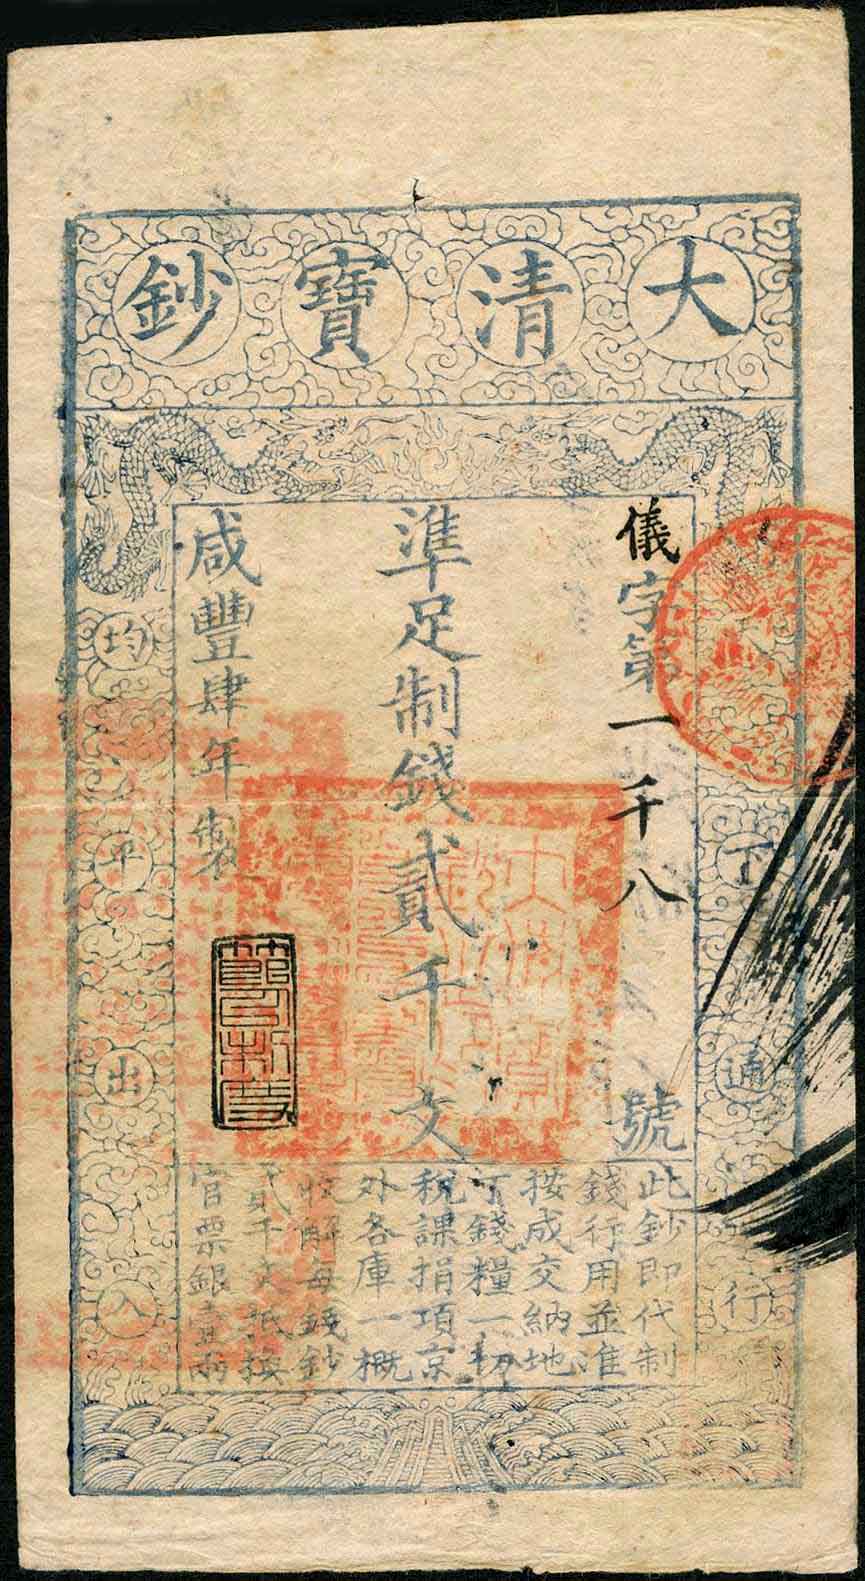 大清寶鈔
儀字第一千八號
準足制錢貳千文
咸豐肆年製
下通行
均平出入
此鈔即代制
錢行用並准
按成交納地
丁錢糧一切
稅課捐項京
外各庫一概
收解每錢鈔
貳千文抵換
官票銀壹兩